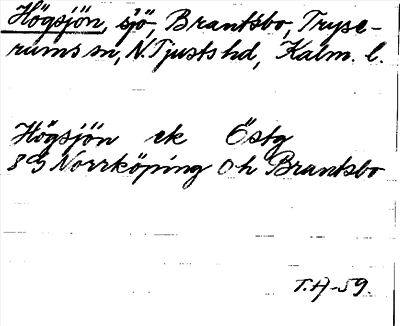 Högsjön, sjö, Brantsbo, Tryse-
rums sn, N. Tjusts hd, Kalm. l.
Högsjön ek Östg
8G Norrköping 0h Brantsbo
T.A-59.